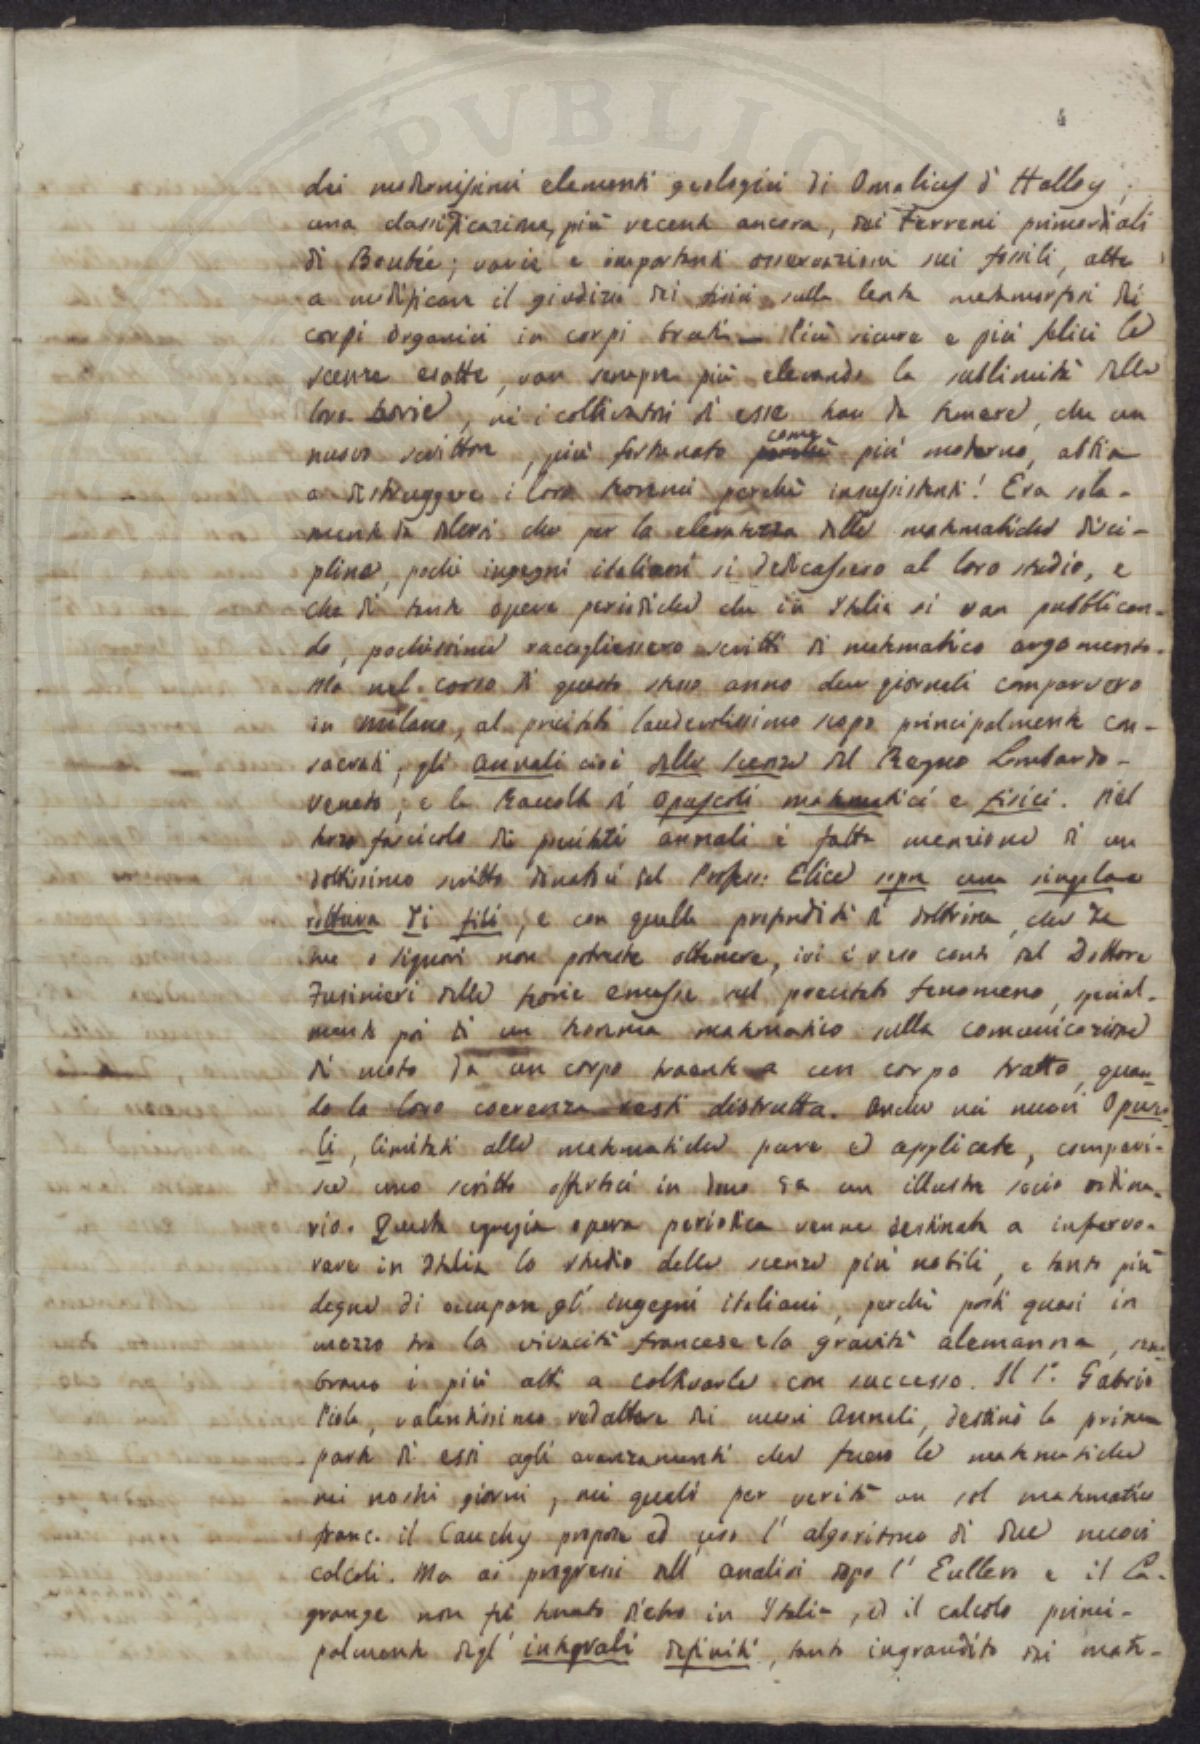 4
dei modernissimi elementi geologici di Omalius d'Halloy;
una classificazione, più recente ancora, dei Terreni primordiali
di Boubée; varie e importanti osservazioni sui fossili, atte
a modificare il giudizio dei fisici sulla lenta metamorfosi dei
corpi organici in corpi bruti — Più sicure e più felici le
scienze esatte, van sempre più elevando la sublimità delle
loro teorie, nè i coltivatori di esse han da temere, che un
nuovo scrittore, più fortunato come più moderno, abbia
a distruggere i loro teoremi perchè insussistenti! Era sola-
mente da dolersi che per la elevatezza delle matematiche disci-
pline, pochi ingegni italiani si dedicassero al loro studio, e
che di tante opere periodiche che in Italia si van pubblican-
do, pochissime raccogliessero scritti di matematico argomento.
Ma nel corso di questo stesso anno due giornali comparvero
in Milano, al precitato laudevolissimo scopo principalmente con-
sacrati, gli annali cioè delle scienze del Regno Lombardo-
veneto, e la Raccolta di opuscoli matematici e fisici. Nel
terzo fascicolo di precitati annali è fatta menzione di un
dottissimo scritto donatoci dal Profess: Elice sopra una singolare
rottura di fili, e con quella profondità di dottrina, che da
me o signori non potreste ottenere, ivi è reso conto dal Dottore
Fusinieri delle teorie emesse sul precitato fenomeno, special-
mente poi di un teorema matematico sulla comunicazione
di moto da un corpo traente a un corpo tratto, quan-
do la loro coerenza resti distrutta. Anche nei nuovi Opusco-
li, limitati alle matematiche pure ed applicate, compari-
sce uno scritto offertoci in dono da un illustre socio ordina-
rio. Questa egregia opera periodica venne destinata a infervo-
rare in Italia lo studio delle scienze più nobili, e tanto più
degne di occupare gl'ingegni italiani, perchè posti quasi in
mezzo tra la vivacità francese e la gravità alemanna, sem-
brano i più atti a coltivarle con successo. Il Sr. Gabrio
Piola, valentissimo redattore dei nuovi Annali, destinò la prima
parte di essi agli avanzamenti che fueno le matematiche
nei nostri giorni, nei quali per verità un sol matematico
franc. il Cauchy propose ed usò l'algoritmo di due nuovi
calcoli. Ma ai progressi dell'analisi dopo l'Eullero e il La-
grange non fu tenuto dietro in Italia, ed il calcolo princi-
palmente degl'integrali definiti, tanto ingrandito dai mate-